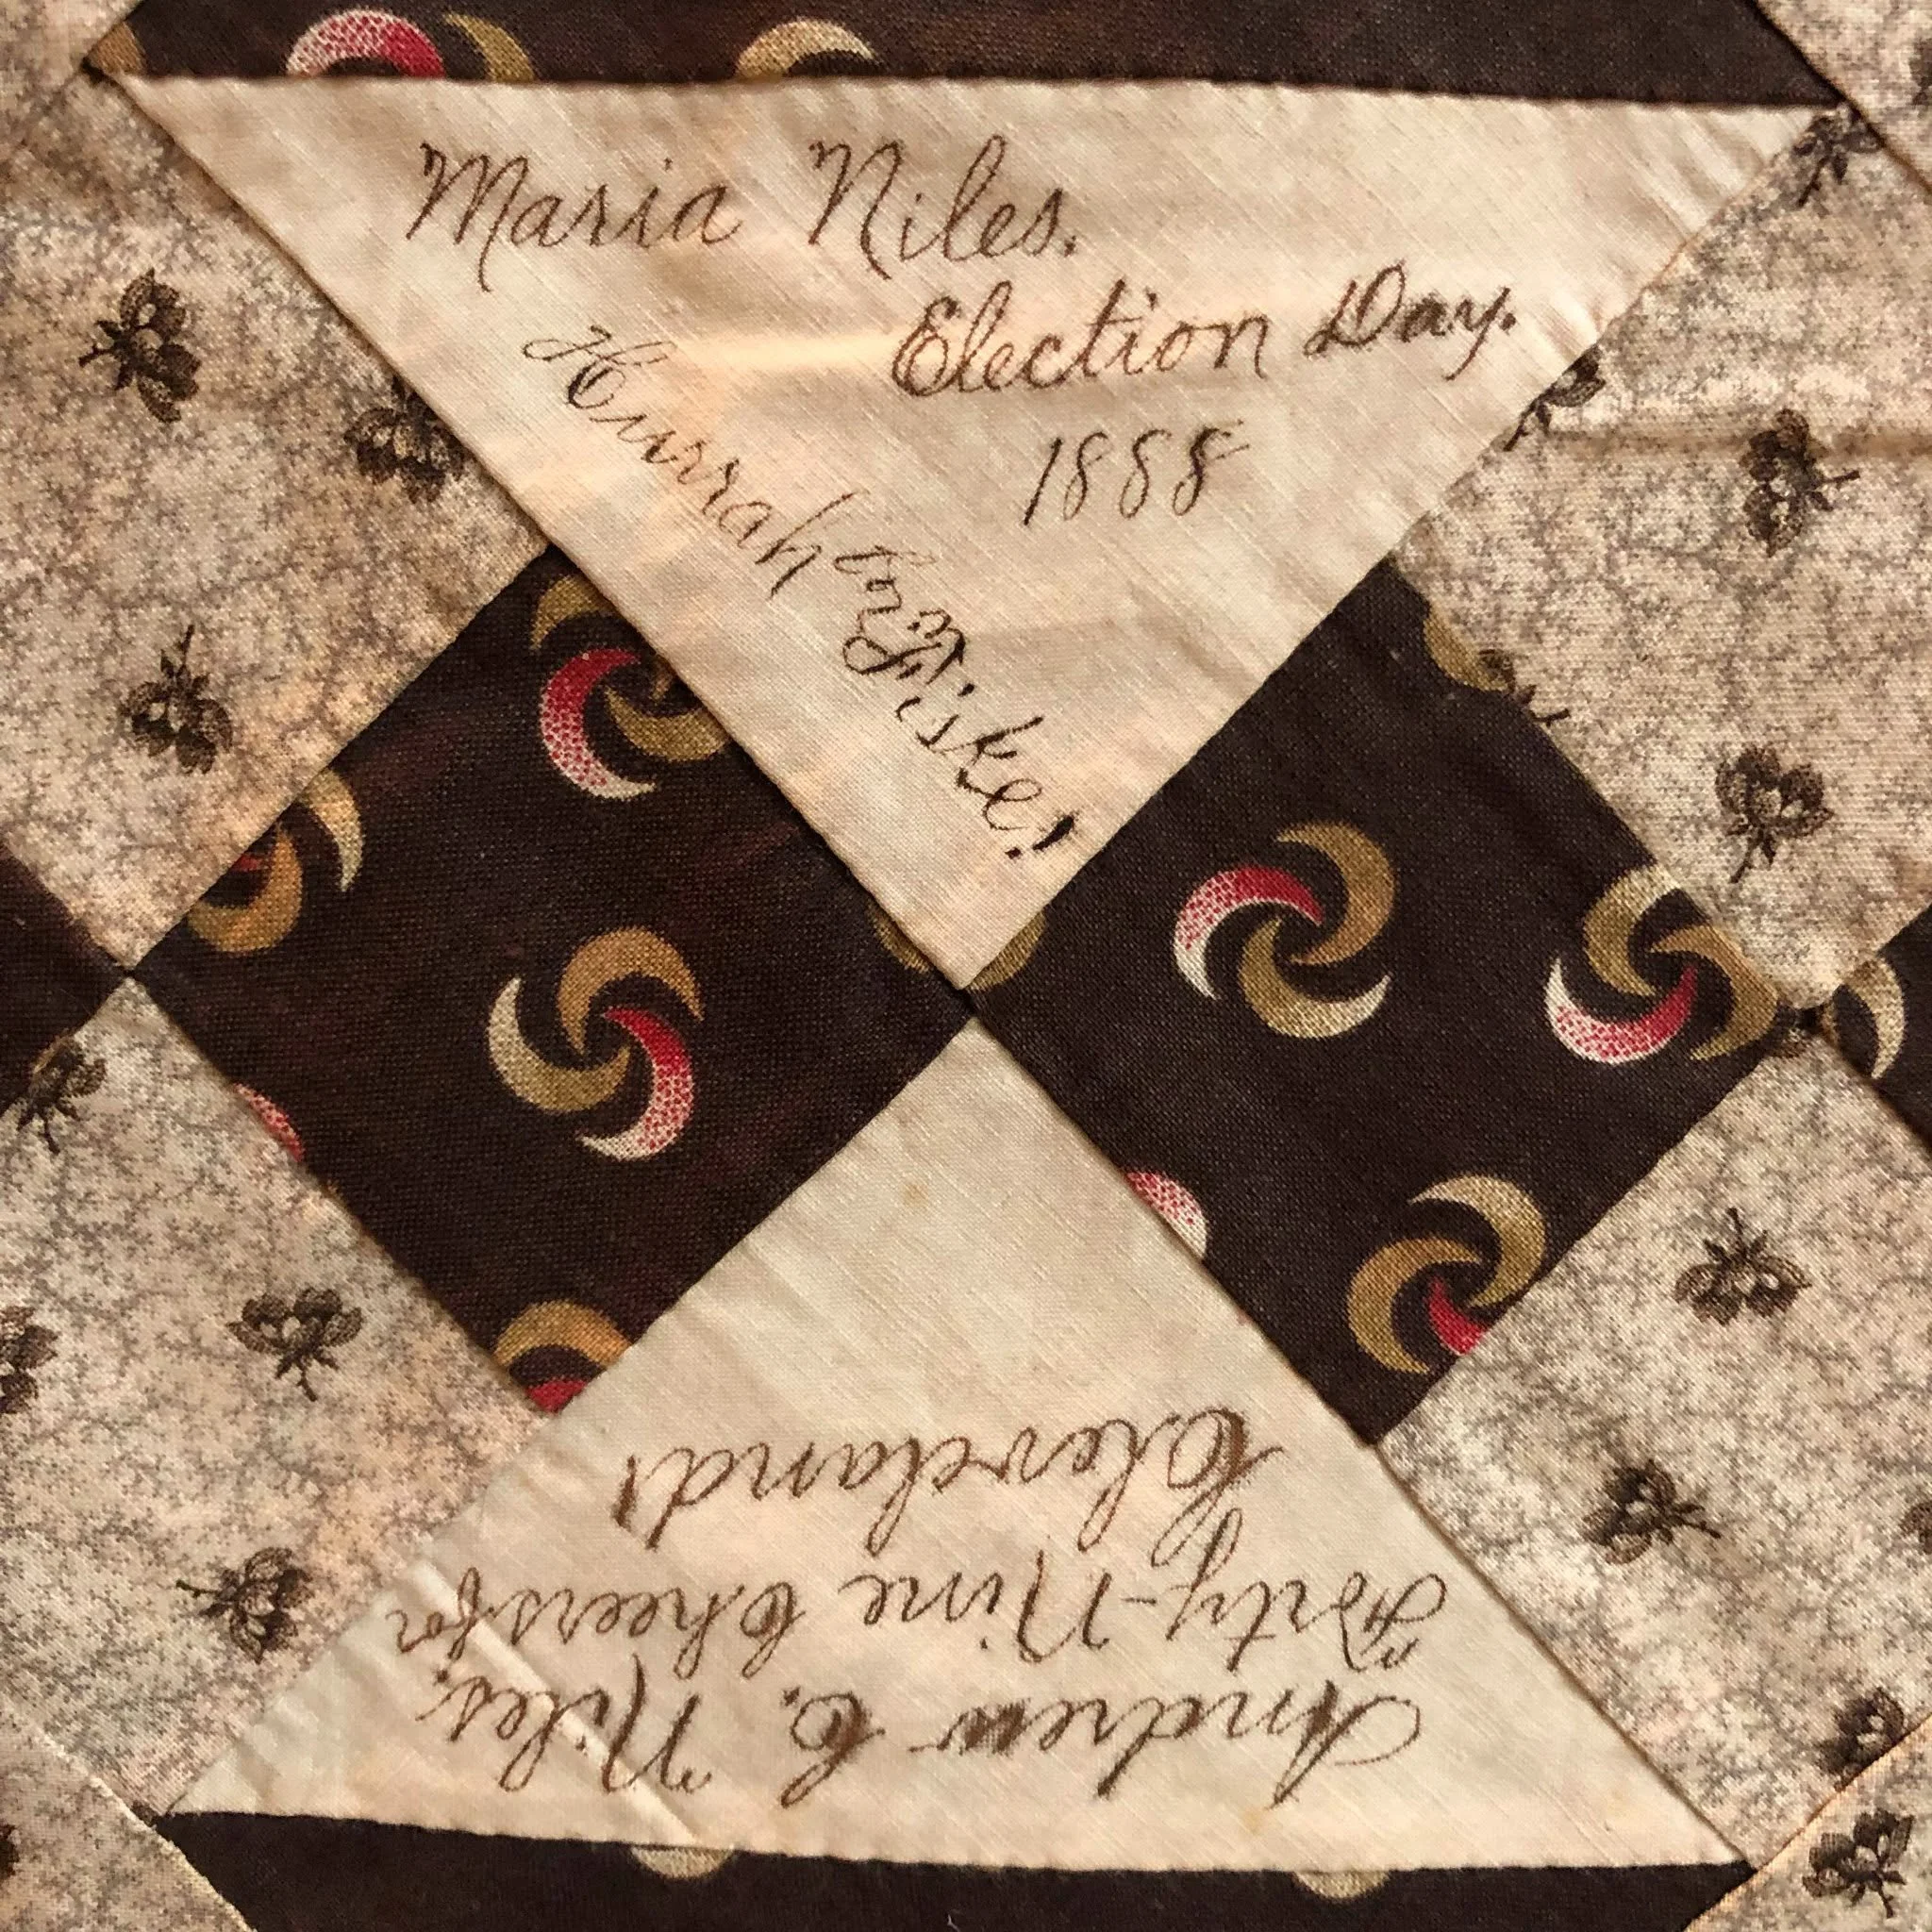 Maria Niles.
Election Day.
1888
Hurrah for Fiske!
Andrew C. Niles.
Forty-Nine Cheers for
Cleveland!